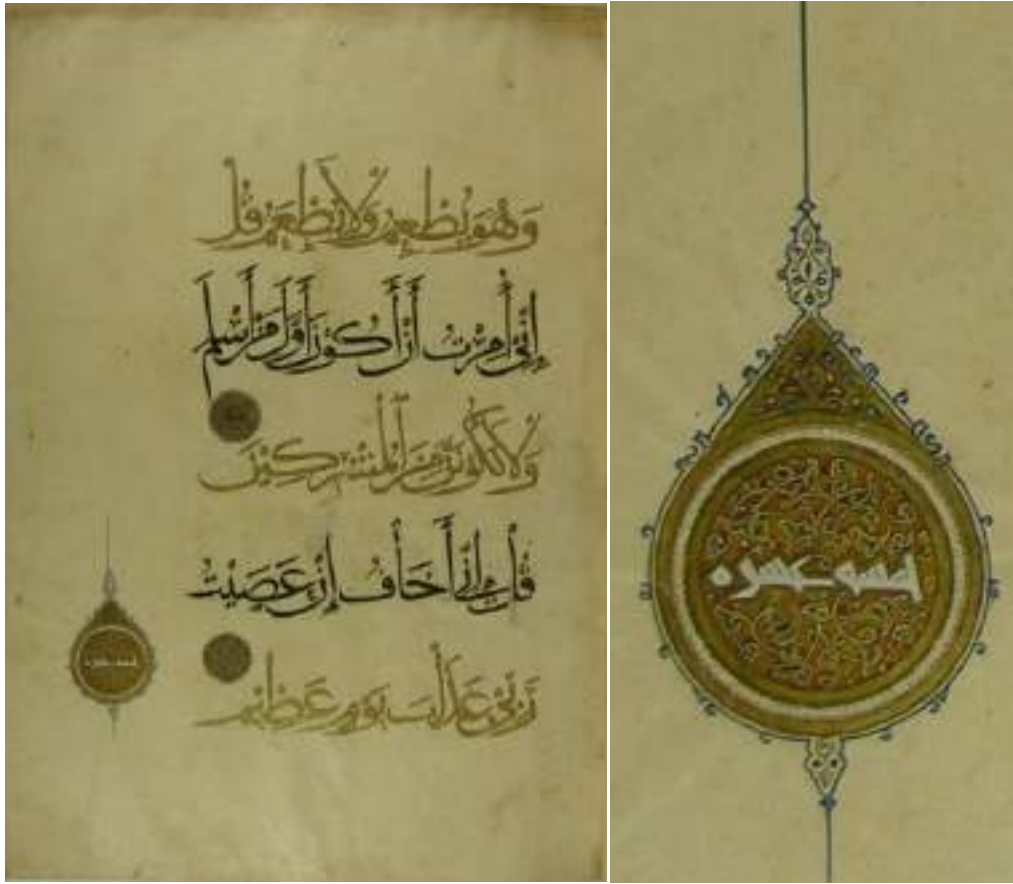 وَهُوَ يُطْعِمُ وَلَا يُطْعَمُ قُلْ
إِنِّي أُمِرْتُ أَنْ أَكُونَ أَوَّلَ مَنْ أَسْلَمَ
وَلَا تَكُونَنَّ مِنَ الْمُشْرِكِينَ
قُلْ إِنِّي أَخَافُ إِنْ عَصَيْتُ
رَبِّي عَذَابَ يَوْمٍ عَظِيمٍ